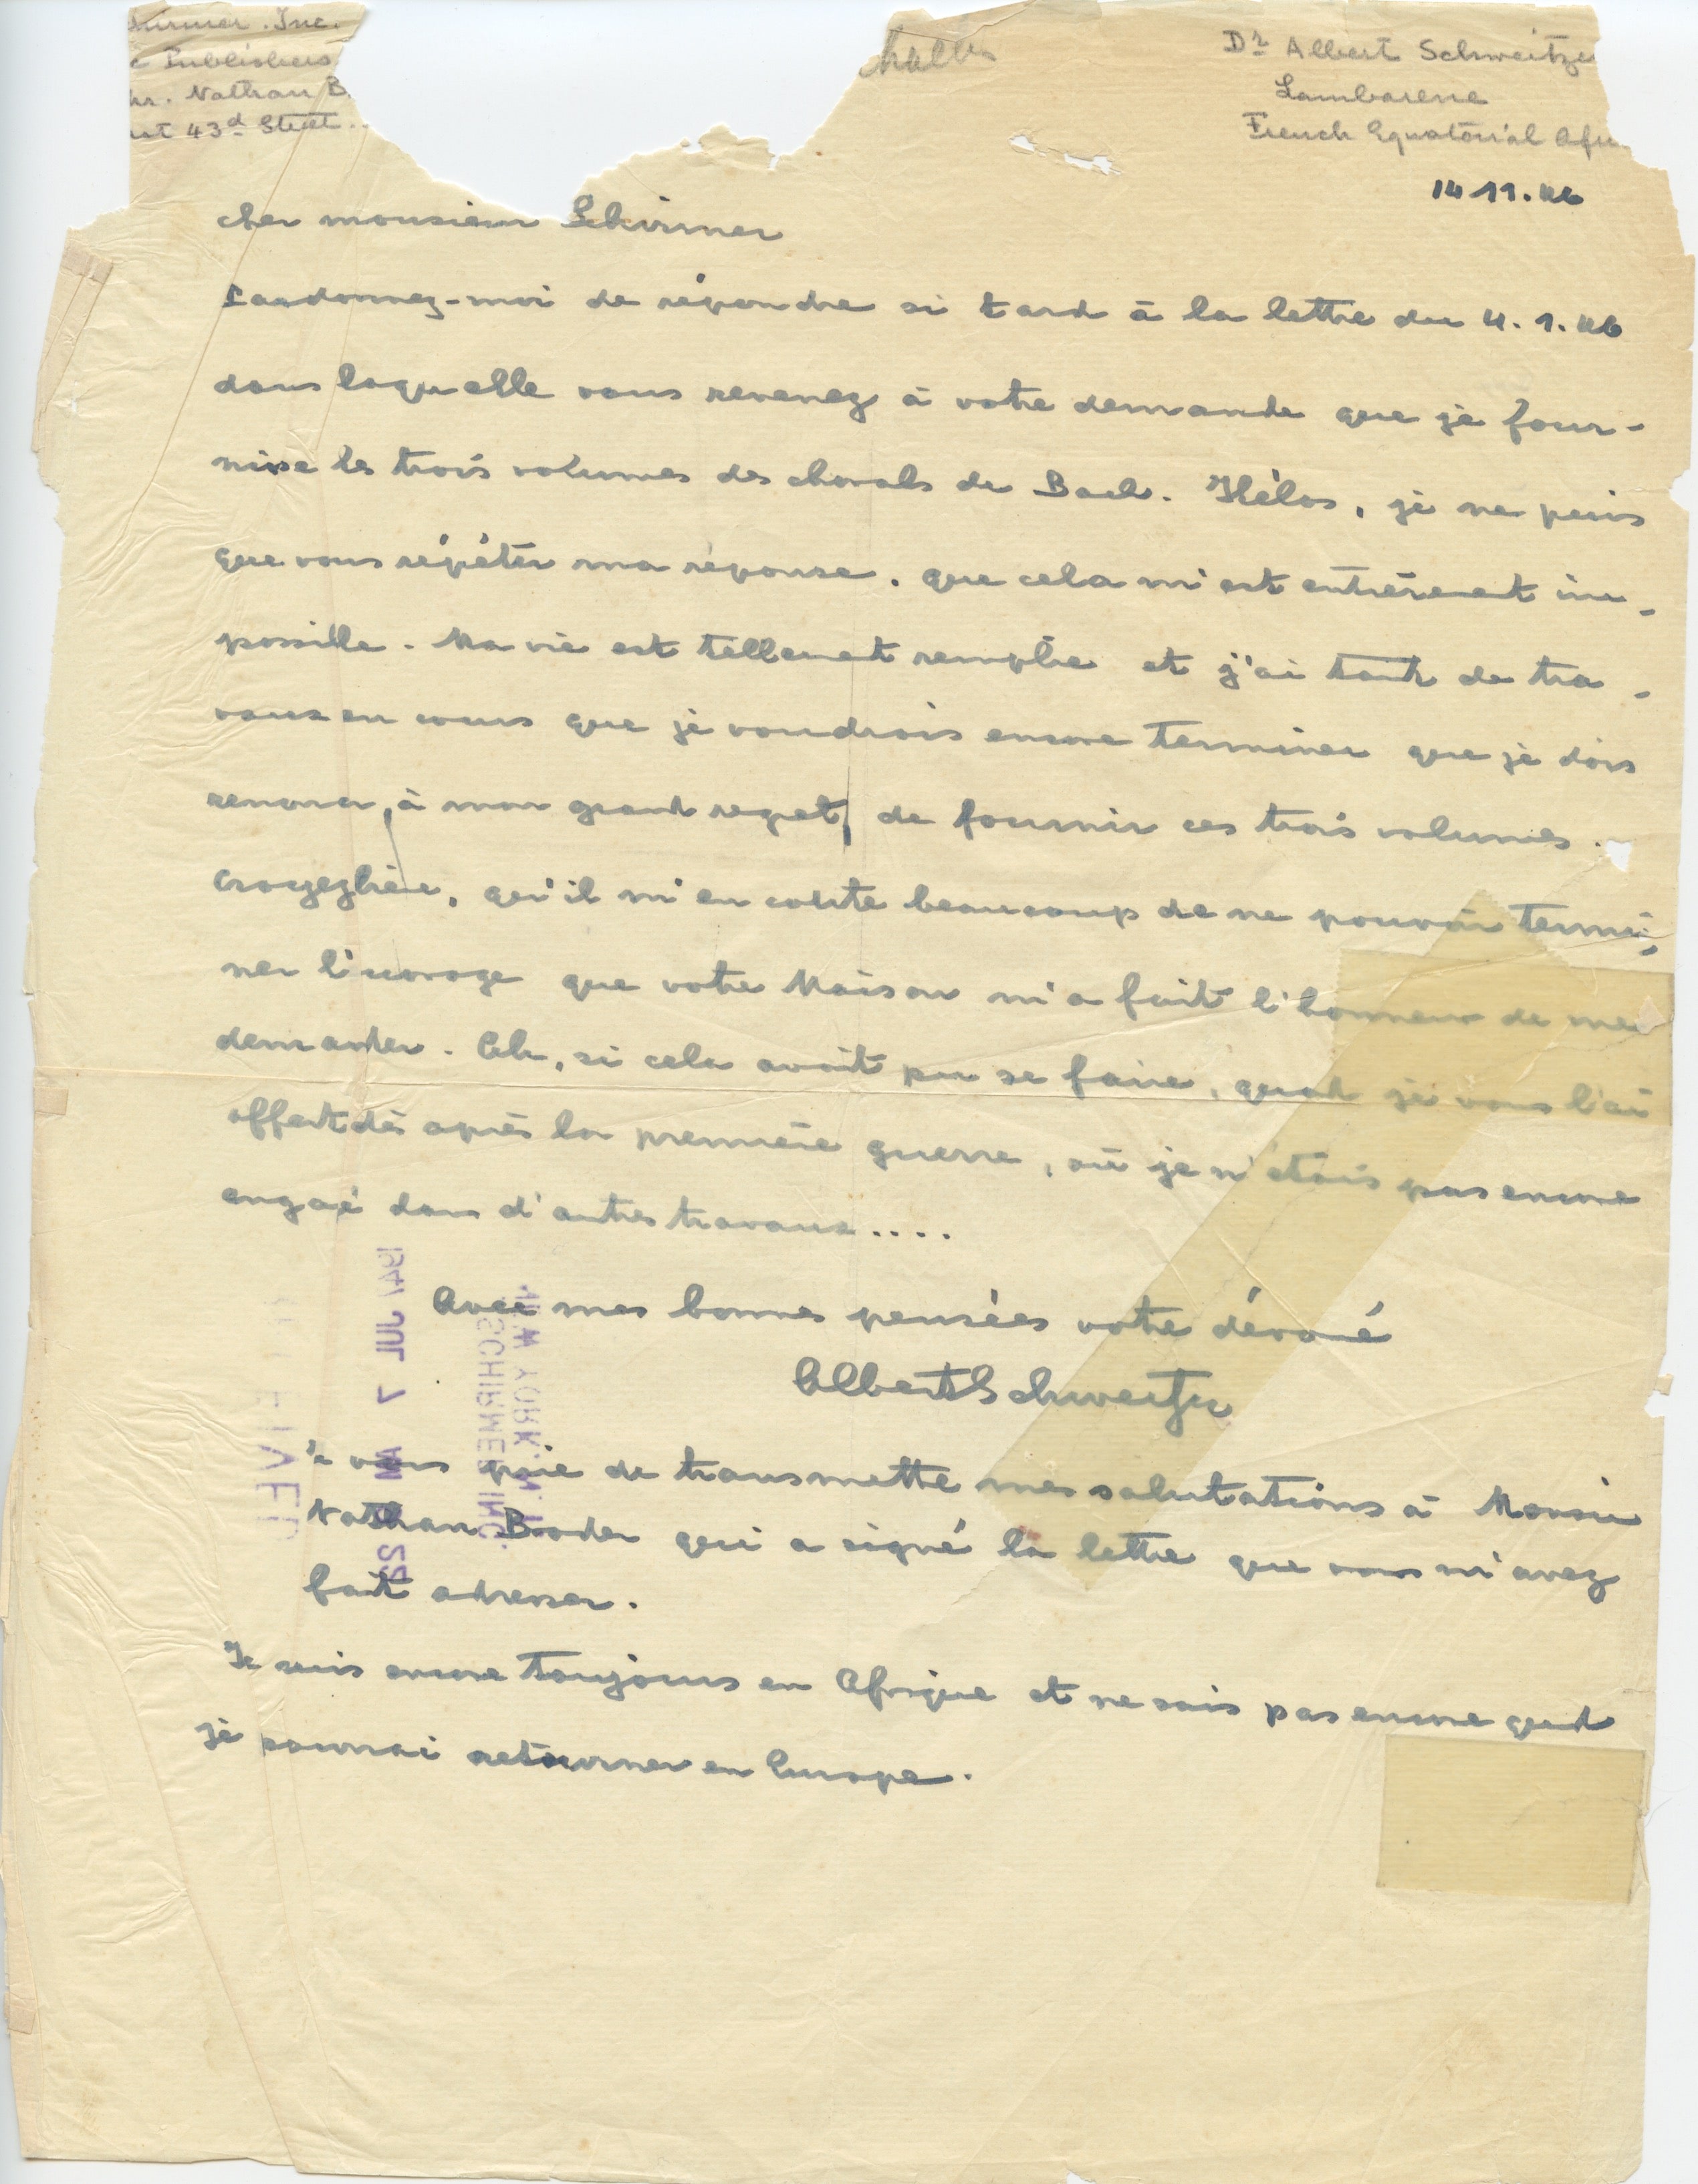 Schirmer. Inc.
Publishers
Mr. Nathan B.
43d Street.
Dr Albert Schweitzer
Lambarene
French Equatorial Afri
14 11. 46
cher monsieur Schirmer
Pardonnez-moi de répondre si tard à la lettre du 4. 1. 46
dans laquelle vous revenez à votre demande que je four-
nisse les trois volumes des chorals de Bach. Hélas, je ne puis
que vous répéter ma réponse, que cela m'est entièrement im-
possible. Ma vie est tellement remplie et j'ai tant de tra-
vaux en cours que je voudrais encore terminer que je dois
renoncer, à mon grand regret, de fournir ces trois volumes.
Croyez bien, qu'il m'en coûte beaucoup de ne pouvoir termi-
ner l'ouvrage que votre Maison m'a fait l'honneur de me
demander. Ah, si cela avait pu se faire, quand je vous l'ai
offert dès après la première guerre, où je n'étais pas encore
engagé dans d'autres travaux....
Avec mes bonnes pensées votre dévoué
Albert Schweitzer
Je vous prie de transmettre mes salutations à Monsieur
Nathan Broder qui a signé la lettre que vous m'avez
fait adresser.
Je suis encore toujours en Afrique et ne sais pas encore quand
je pourrai retourner en Europe.
1947 JUL 7 AM 9 22
G. SCHIRMER INC.
NEW YORK, N. Y.